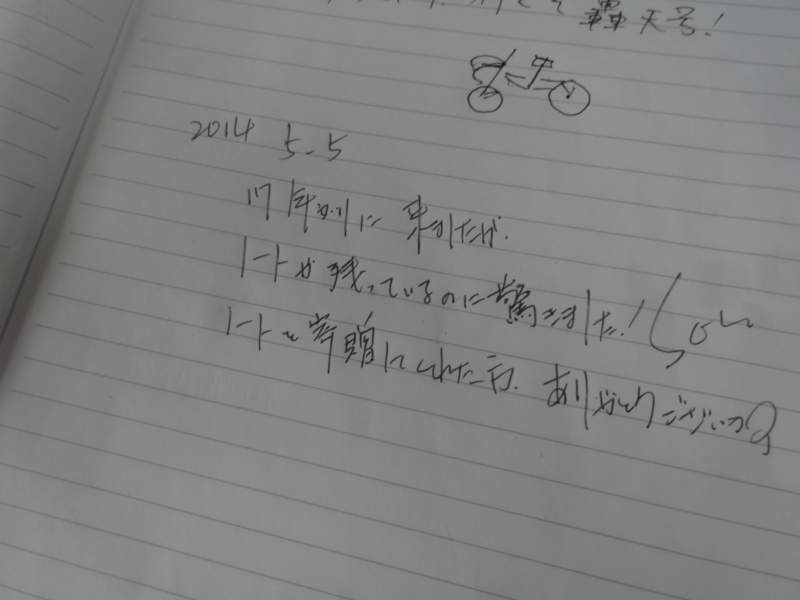 轟天号!
2014 5.5
17年ぶりに来ましたが.
ノートが残っているのに驚きました!
ノートを寄贈してくれた方. ありがとうございます